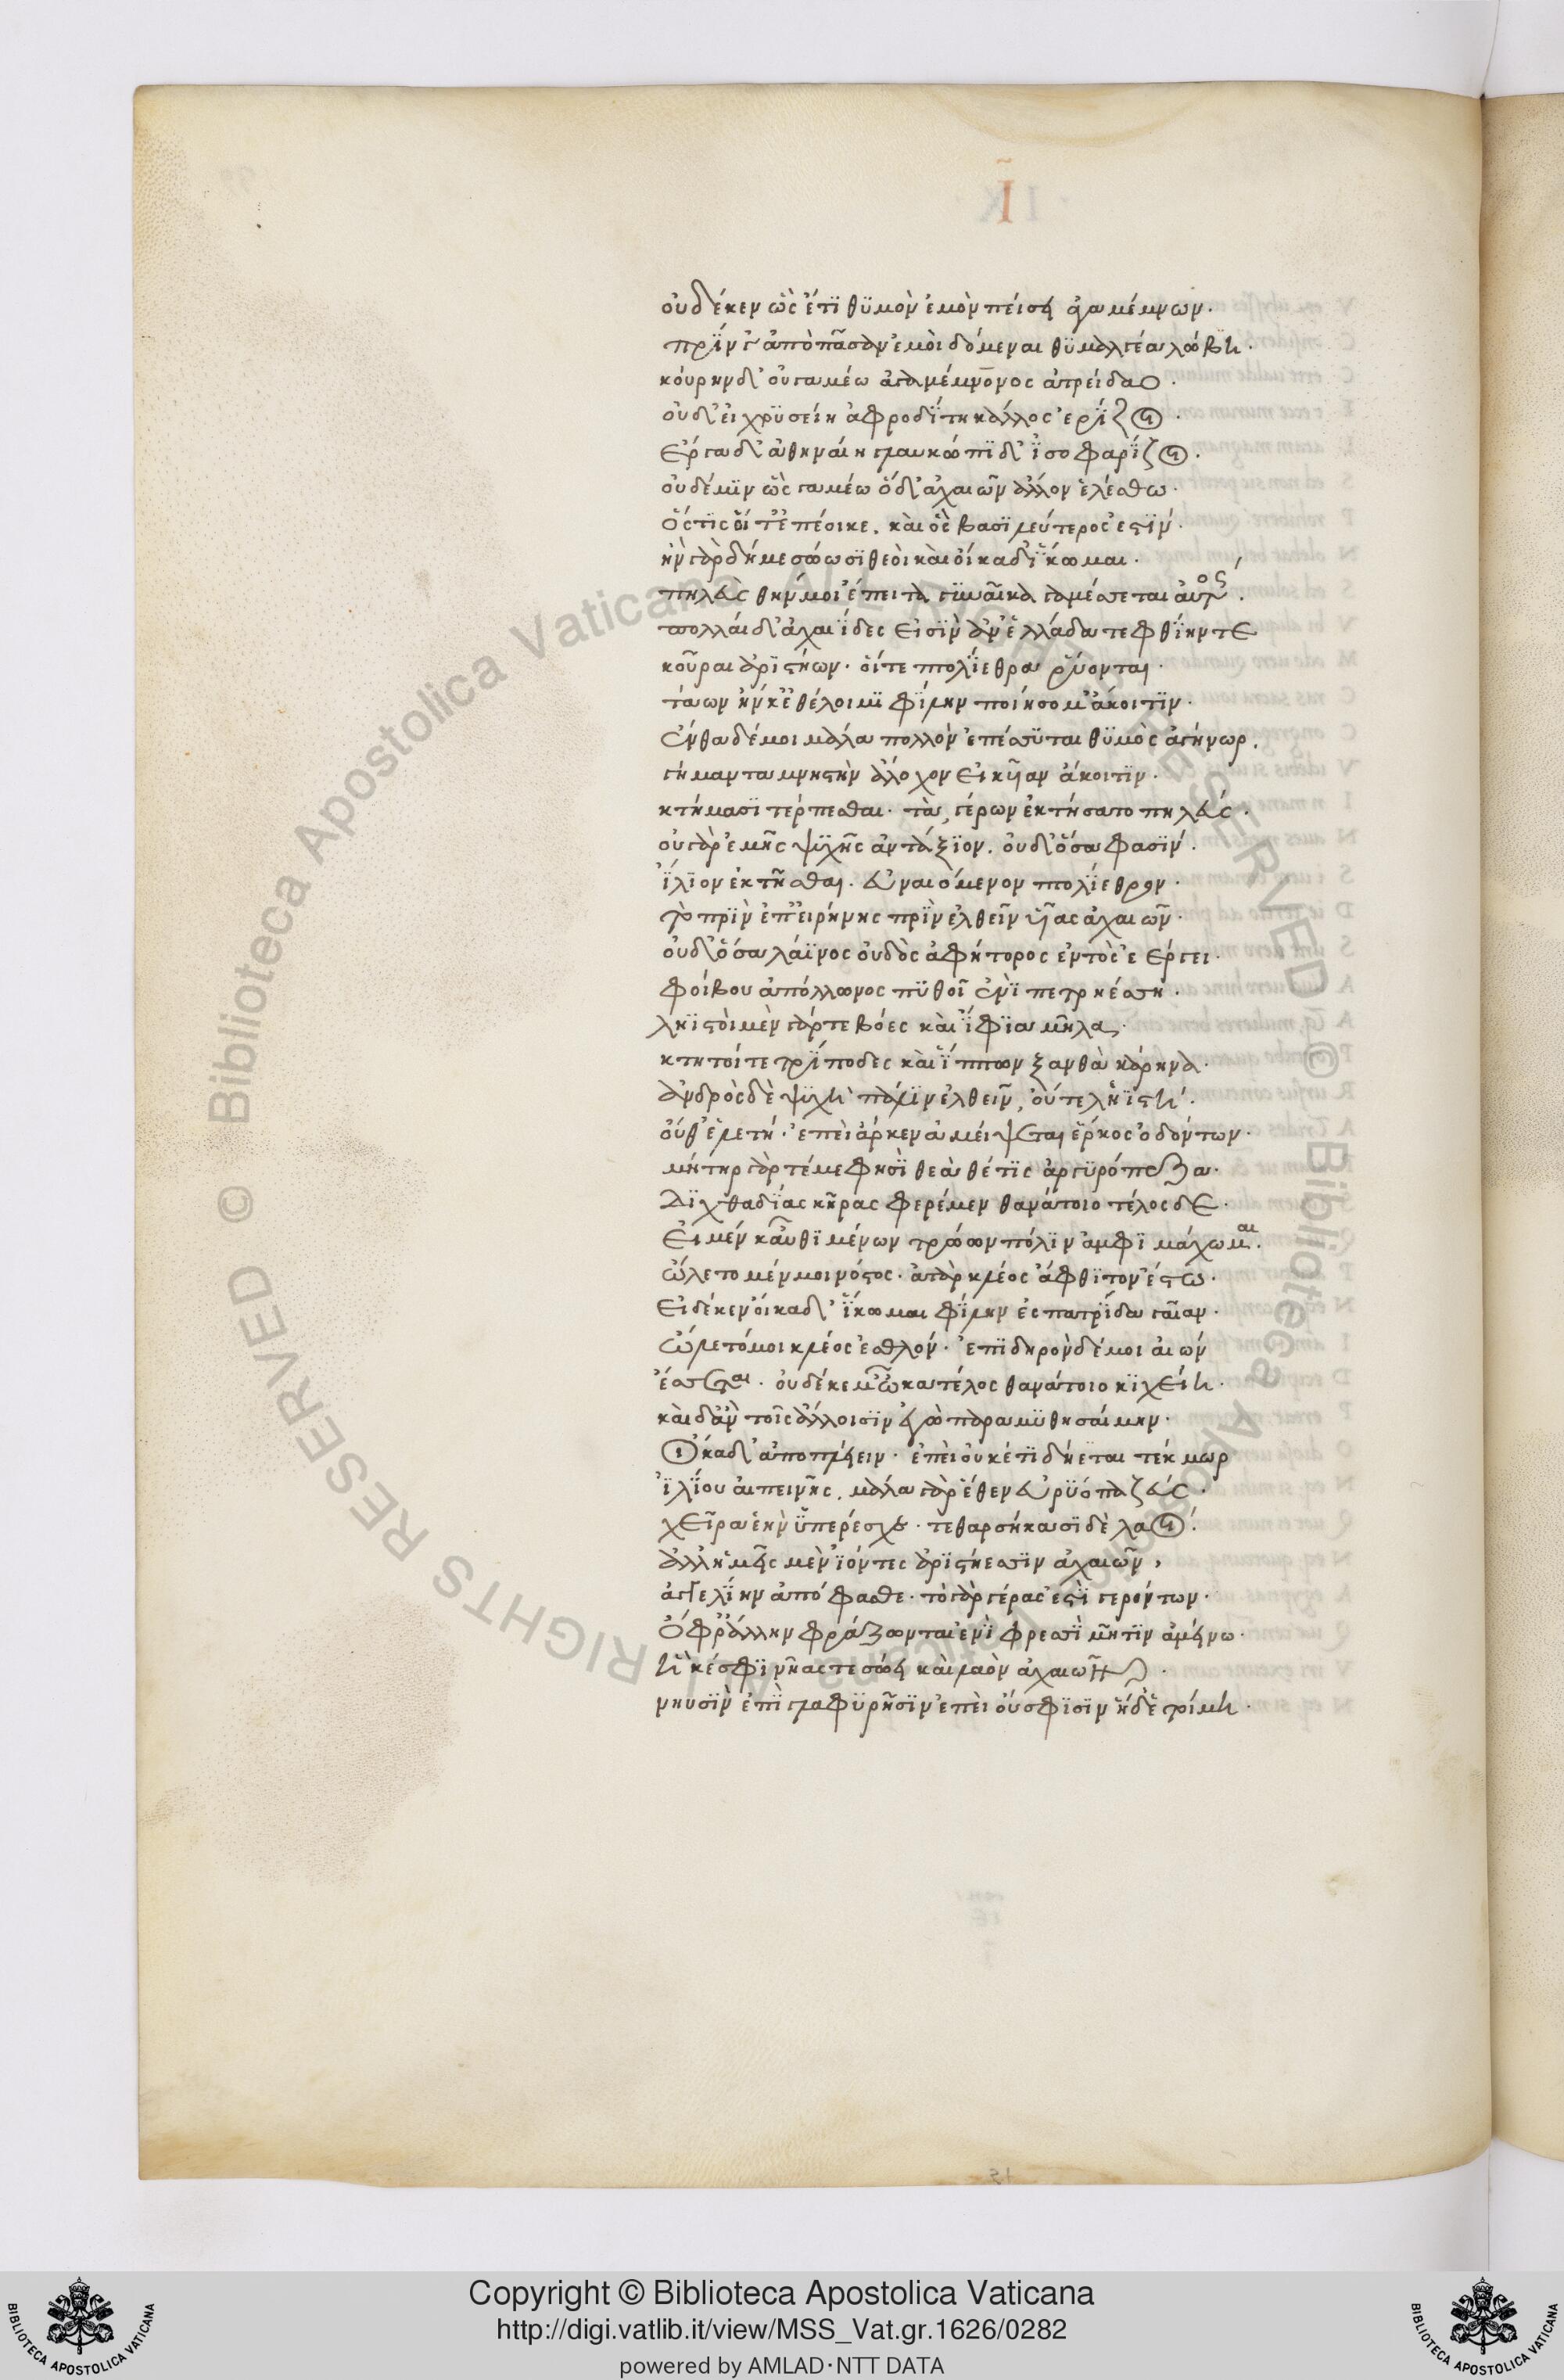 Ι̃
οὐδέ κεν ὣς ἔτϊ θϋμὸν ἐμὸν πείσει ἀγαμέμνων·
πρΐν γ' ἀπὸ πᾶσαν ἐμοὶ δόμεναι θϋμαλγέα λώβην·
κούρην δ' οὐ γαμέω ἀγαμέμνονος ἀτρείδαο·
οὐδ' εἰ χρϋσείη ἀφροδΐτη κάλλος ἐρΐζοι·
ἔργα δ' ἀθηναίη γλαυκώπϊδι ἰσοφαρΐζοι·
οὐδέ μϊν ὣς γαμέω ὅδ' ἀχαιῶν ἄλλον ἑλέσθω·
ὅς τϊς οἵ τ' ἐπέοικε. καὶ ὃς βασϊλεύτερος ἐστΐν·
ἢν γὰρ δή με σώωσϊ θεοὶ καὶ οἴκαδ' ΐκωμαι·
πηλεὺς θήν μοι ἔπειτα γϋναῖκα γαμέσσεται αὐτός·
πολλαὶ δ' ἀχαιΐδες εἰσΐν ἀν' ἑλλάδα τε φθΐην τε
κοῦραι ἀρϊστήων· οἵτε πτολΐεθρα ῥύονται·
τάων ἥν κ' ἐθέλοιμϊ φΐλην ποιήσομ' ἄκοιτϊν·
ἔνθα δέ μοι μάλα πολλὸν ἐπέσσϋται θϋμὸς ἀγήνωρ.
γήμαντα μνηστὴν ἄλοχον εἰκυῖαν ἄκοιτϊν·
κτήμασϊ τέρπεσθαι· τὰ γέρων ἐκτήσατο πηλεύς·
οὐ γὰρ ἐμῆς ψϋχῆς ἀντάξϊον. οὐδ' ὅσα φασΐν·
ΐλϊον ἐκτῆσθαι. εὐναιόμενον πτολΐεθρον·
τὸ πρΐν ἐπ' εἰρήνης πρΐν ἐλθεῖν υἷας ἀχαιῶν·
οὐδ' ὅσα λάϊνος οὐδὸς ἀφήτορος ἐντὸς ἐέργει·
φοίβου ἀπόλλωνος πϋθοῖ ἔνϊ πετρηέσση·
ληϊστοὶ μὲν γάρ τε βόες καὶ ΐφϊα μῆλα,
κτητοί τε τρΐποδες καὶ ΐππων ξανθὰ κάρηνα·
ἀνδρὸς δὲ ψϋχὴ πάλϊν ἐλθεῖν, οὔτε ληϊστή·
οὔθ' ἑλετή· ἐπεὶ ἄρ κεν ἀμείψεται ἕρκος ὀδόντων·
μήτηρ γάρ τέ με φησΐ θεὰ θέτϊς ἀργϋρόπεζα·
Δϊχθαδΐας κῆρας φερέμεν θανάτοιο τέλος δὲ·
Εἰ μέν κ' αὖθϊ μένων τρώων πόλϊν ἀμφϊμάχωμαι·
ὤλετο μέν μοι νόστος· ἀτὰρ κλέος ἄφθϊτον ἔσται·
Εἰ δέ κεν οἴκαδ' ΐκωμαι φΐλην ἐς πατρΐδα γαῖαν·
ὤλετό μοι κλέος ἐσθλόν· ἐπϊ δηρὸν δέ μοι αἰών
ἔσσεται· οὐδέ κέ μ' ὦκα τέλος θανάτοιο κϊχείη·
καὶ δ' ἂν τοῖς ἄλλοισϊν ἐγὼ παραμϋθησαίμην·
Οἴκαδ' ἀποπλείειν· ἐπεὶ οὐκέτϊ δήετε τέκμωρ
ΐλΐου αἰπεινῆς. μάλα γὰρ ἕθεν εὐρϋόπα ζεύς·
χεῖρα ἑὴν ϋπερέσχε· τεθαρσήκασϊ δὲ λαοί·
ἀλλ' ὑμεῖς μὲν ϊόντες ἀρϊστήεσσϊν ἀχαιῶν,
ἀγγελΐην ἀπόφασθε· τὸ γὰρ γέρας ἐστΐ γερόντων·
Ὄφρ' ἄλλην φράζωνται ἐνΐ φρεσΐ μῆτϊν ἀμείνω·
ἥ κέ σφϊ νῆας τε σώη καὶ λαὸν ἀχαιῶν·
νηυσΐν ἔπϊ γλαφϋρῆσϊν ἐπεὶ οὔ σφϊσϊν ἥδε γ' ἑτοίμη·
Copyright © Biblioteca Apostolica Vaticana
http://digi.vatlib.it/view/MSS_Vat.gr.1626/0282
powered by AMLAD·NTT DATA
BIBLIOTECA APOSTOLICA VATICANA
BIBLIOTECA APOSTOLICA VATICANA
© Biblioteca Apostolica Vaticana ALL RIGHTS RESERVED © Biblioteca Apostolica Vaticana ALL RIGHTS RESERVED